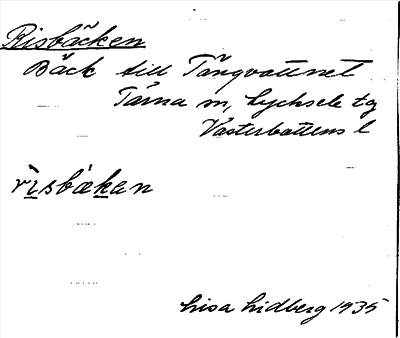 Risbäcken
Bäck till Tängvattnet
Tärna sn, Lycksele tg
Västerbottens l
rìsbä́ken
Lisa Lidberg 1935